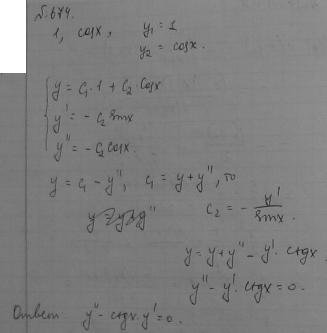 №674.
1, cosx, y₁ = 1
y₂ = cosx.
y = C₁·1 + C₂·cosx
y' = -C₂ sinx
y'' = -C₂ cosx.
y = C₁ - y'', C₁ = y + y'', то
C₂ = - y'/sinx.
y = y + y'' - y'·ctgx
y'' - y'·ctgx = 0.
Ответ: y'' - ctgx·y' = 0.